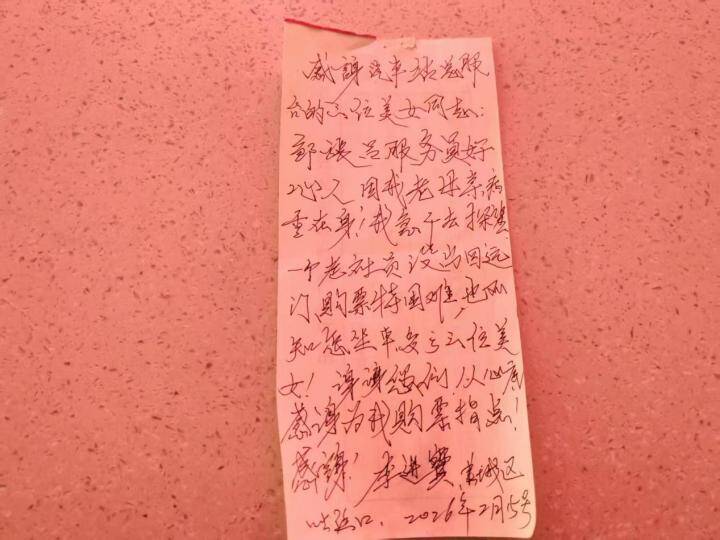 感谢汽车站总服
台的三位美女同志:
都是吕服务员好
心人 因我老母亲病
重在身!我急于去探望
一个老社员没出回远
门,购票特困难,也不
知怎坐车,多亏三位美
女! 谢谢您们!从心底
感谢为我购票指点!
感谢! 李进宝
口. 2026年2月5号